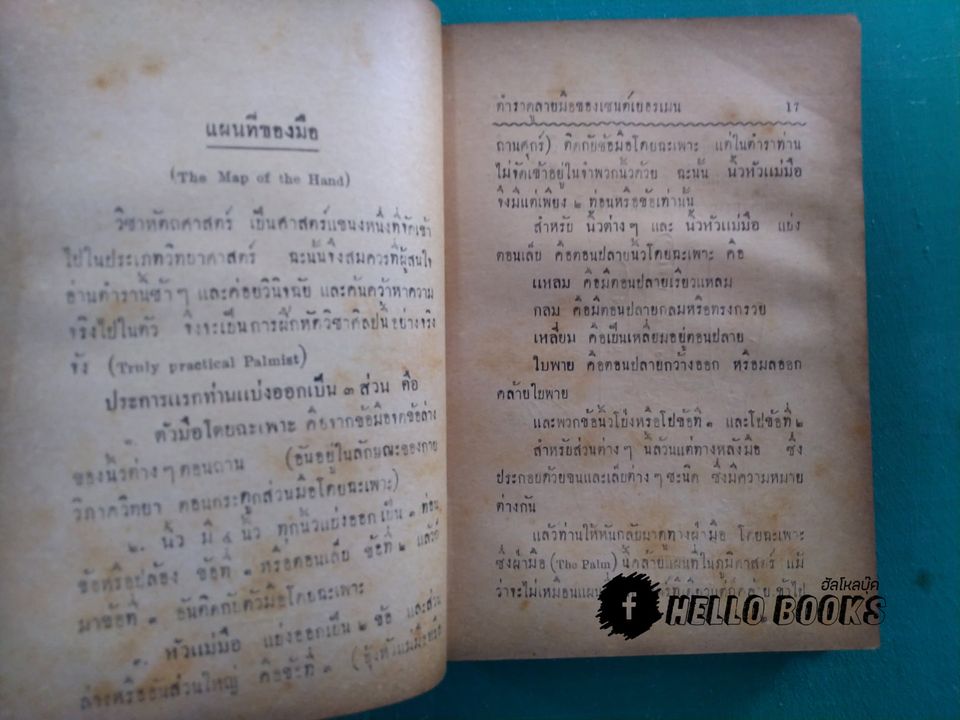 แผนที่ของมือ
(The Map of the Hand)
วิชาหัตถศาสตร์ เป็นศาสตร์แขนงหนึ่งที่จัดเข้า
ไปในประเภทวิทยาศาสตร์ ฉะนั้นจึงสมควรที่ผู้สนใจ
อ่านตำรานี้ซ้ำๆ และค่อยวินิจฉัย และค้นคว้าหาความ
จริงไปในตัว จึงจะเป็นการฝึกหัดวิชาศิลปนี้อย่างจริง
จัง (Truly practical Palmist)
ประการแรกท่านแบ่งออกเป็น ๓ ส่วน คือ
๑. ตัวมือโดยฉะเพาะ คือจากข้อมือจดข้อล่าง
ของนิ้วต่างๆตอนถาน (อันอยู่ในลักษณะของกาย
วิภาควิทยา ตอนกระดูกส่วนมือโดยฉะเพาะ)
๒. นิ้ว มี ๔ นิ้ว ทุกนิ้วแบ่งออกเป็น ๓ ท่อน
ข้อที่ ๑ หรือตอนเล็บ ข้อที่ ๒ แล้วก็
มาข้อที่ ๓ อันติดกับตัวมือโดยฉะเพาะ
หัวแม่มือ แบ่งออกเป็น ๒ ข้อ และส่วน
ล่างหรืออันส่วนใหญ่ คือข้อที่ ๓
ตำราดูลายมือของเซนต์เยอรแมน 17
ถานศุกร์) ติดกับข้อมือโดยฉะเพาะ แต่ในตำราท่าน
ไม่จัดเข้าอยู่ในจำพวกนิ้วด้วย ฉะนั้น นิ้วหัวแม่มือ
จึงมีแต่เพียง ๒ ท่อนหรือข้อเท่านั้น
สำหรับ นิ้วต่างๆ และ นิ้วหัวแม่มือ แบ่ง
ตอนเล็บ คือตอนปลายนิ้วโดยฉะเพาะ คือ
แหลม คือมีตอนปลายเรียวแหลม
กลม คือมีตอนปลายกลมหรือทรงกรวย
เหลี่ยม คือเป็นเหลี่ยมอยู่ตอนปลาย
ใบพาย คือตอนปลายกว้างออก หรือผลออก
คล้ายใบพาย
และพวกข้อนิ้วโป่งหรือโปข้อที่ ๑ และโปข้อที่ ๒
สำหรับส่วนต่างๆ นี้ล้วนแต่ทางหลังมือ ซึ่ง
ประกอบด้วยขนและเล็บต่างๆชะนิด ซึ่งมีความหมาย
ต่างกัน
แล้วท่านให้หันกลับมาดูทางฝ่ามือ โดยฉะเพาะ
ซึ่งฝ่ามือ (The Palm) นี้คล้ายแผนที่ในภูมิศาสตร์ แม้
ว่าจะไม่เหมือนแผน
ฮัลโหลบุ๊ค
f HELLO BOOKS